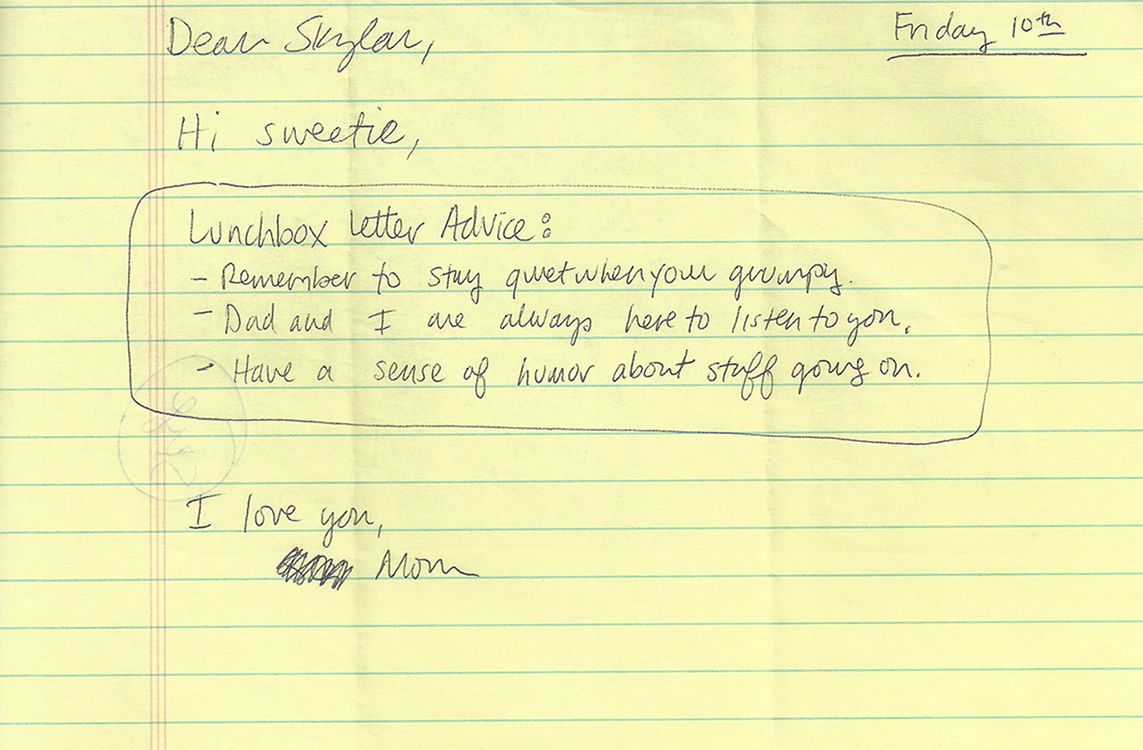 Friday 10th
Dear Skylar,
Hi sweetie,
Lunchbox Letter Advice:
- Remember to stay quiet when your grumpy.
- Dad and I are always here to listen to you.
- Have a sense of humor about stuff going on.
I love you,
Mom